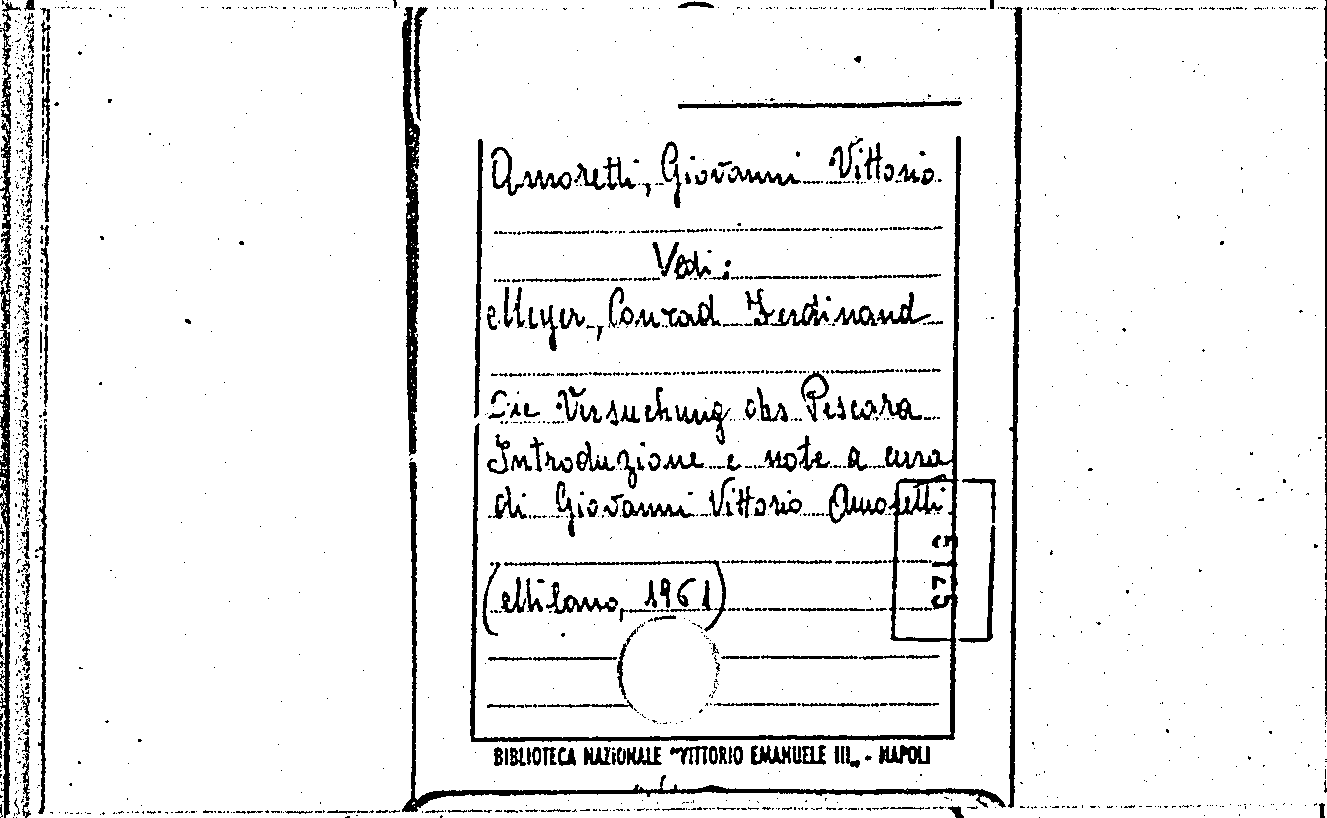 Amoretti, Giovanni Vittorio
Vedi:
Meyer, Conrad Ferdinand
Die Versuchung des Pescara
Introduzione e note a cura
di Giovanni Vittorio Amoretti
(Milano, 1961)
BIBLIOTECA NAZIONALE "VITTORIO EMANUELE III„ - NAPOLI